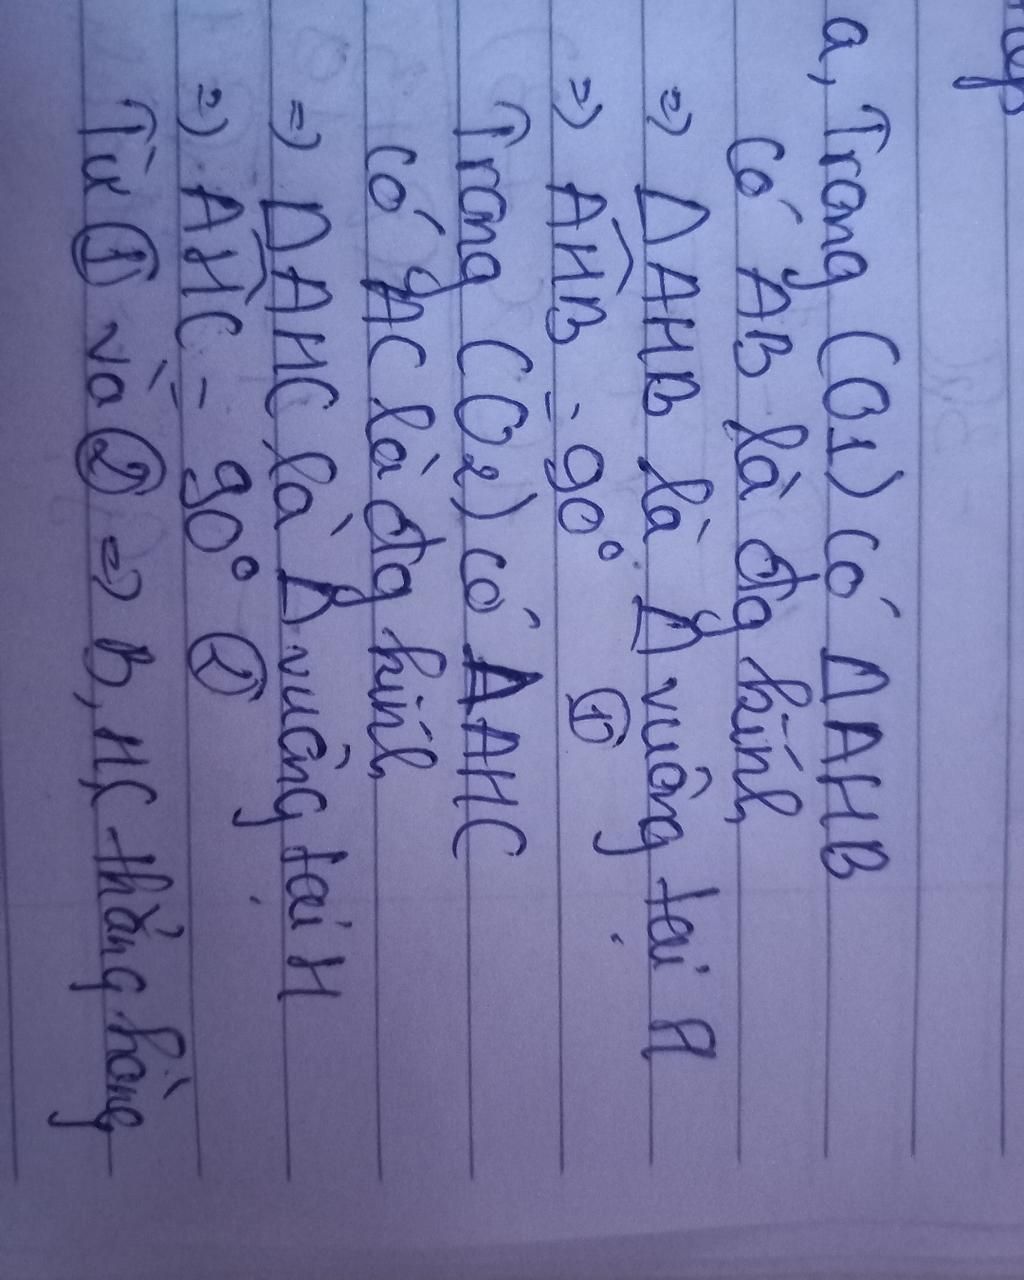 a, Trong (O1) có ΔAHB
có AB là đg kính
=> ΔAHB là Δ vuông tại H
=> AHB = 90° ①
Trong (O2) có ΔAHC
có AC là đg kính
=> ΔAHC là Δ vuông tại H
=> AHC = 90° ②
Từ ① và ② => B, H, C thẳng hàng